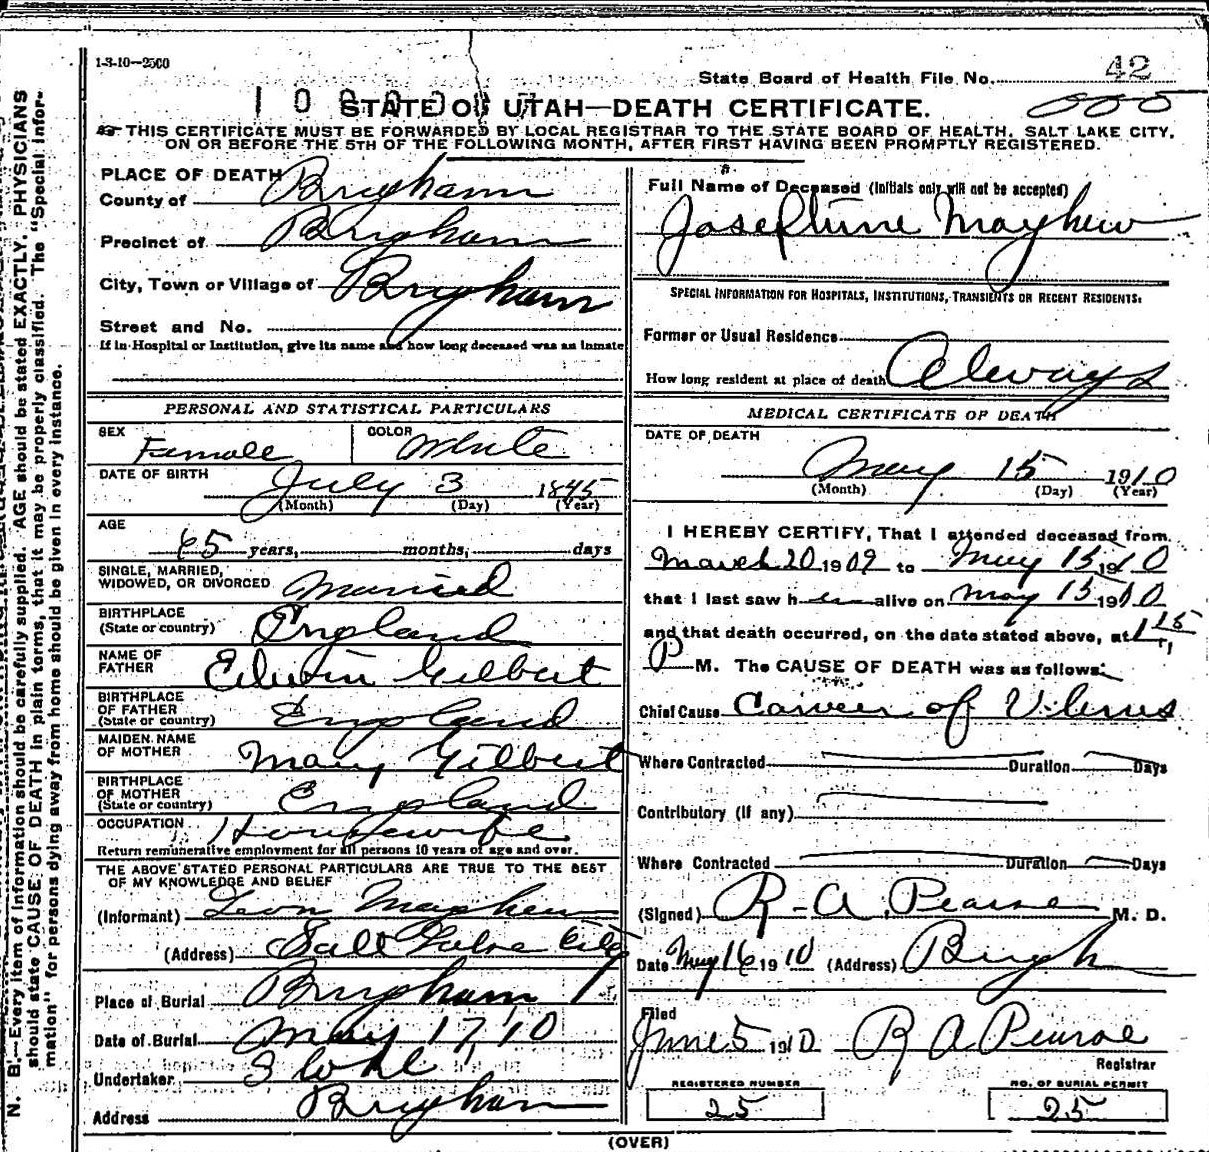 1-3-10--2500
State Board of Health File No. 42
STATE OF UTAH—DEATH CERTIFICATE.
THIS CERTIFICATE MUST BE FORWARDED BY LOCAL REGISTRAR TO THE STATE BOARD OF HEALTH, SALT LAKE CITY,
ON OR BEFORE THE 5TH OF THE FOLLOWING MONTH, AFTER FIRST HAVING BEEN PROMPTLY REGISTERED.
PLACE OF DEATH
County of Brigham
Precinct of Brigham
City, Town or Village of Brigham
Street and No.
If in Hospital or Institution, give its name and how long deceased was an inmate
PERSONAL AND STATISTICAL PARTICULARS
SEX Female COLOR White
DATE OF BIRTH July 3 1845
(Month) (Day) (Year)
AGE
65 years, months, days
SINGLE, MARRIED,
WIDOWED, OR DIVORCED Married
BIRTHPLACE
(State or country) England
NAME OF
FATHER Edwin Gilbert
BIRTHPLACE
OF FATHER
(State or country) England
MAIDEN NAME
OF MOTHER Mary Gilbert
BIRTHPLACE
OF MOTHER
(State or country) England
OCCUPATION Housewife
Return remunerative employment for all persons 10 years of age and over.
THE ABOVE STATED PERSONAL PARTICULARS ARE TRUE TO THE BEST
OF MY KNOWLEDGE AND BELIEF
(Informant) Leon Mayhew
(Address) Salt Lake City
Place of Burial Brigham
Date of Burial May 17, 10
Undertaker
Address Brigham
Full Name of Deceased (Initials only will not be accepted)
Josephine Mayhew
SPECIAL INFORMATION FOR HOSPITALS, INSTITUTIONS, TRANSIENTS OR RECENT RESIDENTS.
Former or Usual Residence
How long resident at place of death Always
MEDICAL CERTIFICATE OF DEATH
DATE OF DEATH
May 15 1910
(Month) (Day) (Year)
I HEREBY CERTIFY, That I attended deceased from
March 20 1909 to May 15 1910
that I last saw her alive on May 15 1910
and that death occurred, on the date stated above, at
P M. The CAUSE OF DEATH was as follows:
Chief Cause Cancer of Uterus
Where Contracted Duration Days
Contributory (if any)
Where Contracted Duration Days
(Signed) R. A. Pearse M. D.
Date May 16 1910 (Address) Brigh
Filed
June 5 1910 R A Pearse
Registrar
REGISTERED NUMBER
25
NO. OF BURIAL PERMIT
25
(OVER)
N. B.—Every item of information should be carefully supplied. AGE should be stated EXACTLY. PHYSICIANS
should state CAUSE OF DEATH in plain terms, that it may be properly classified. The "Special Infor-
mation" for persons dying away from home should be given in every instance.